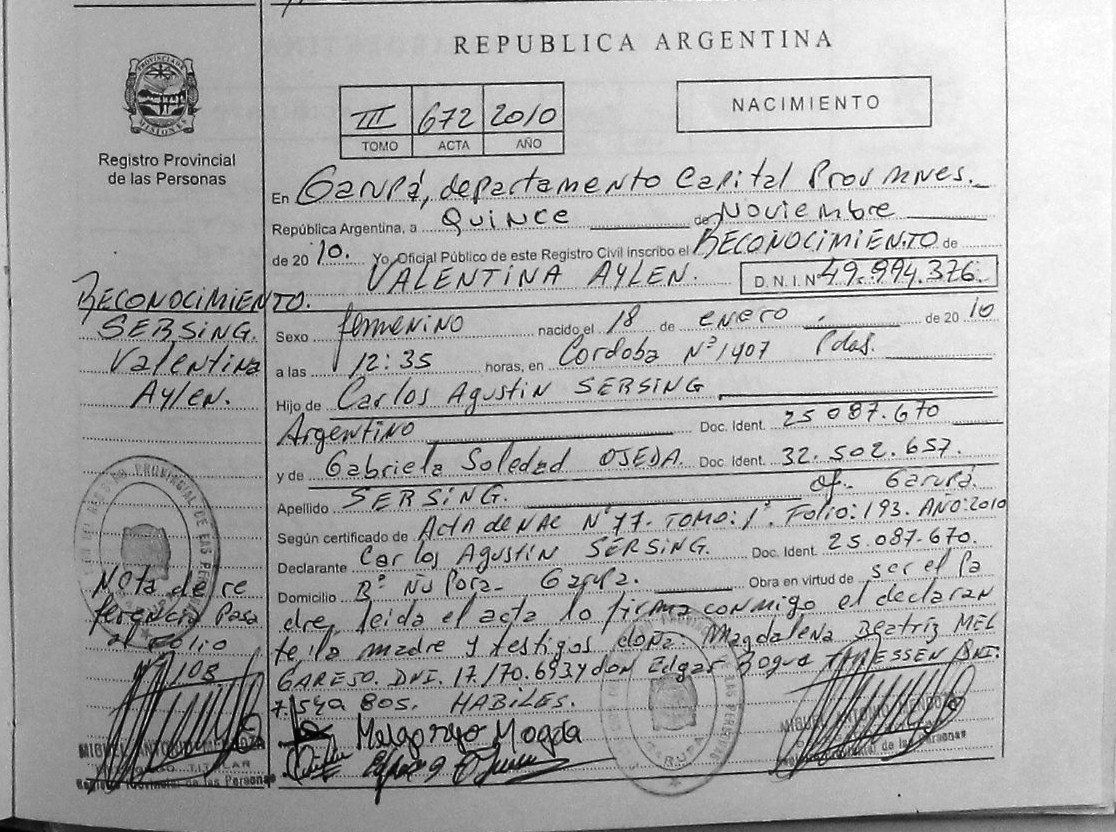 REPUBLICA ARGENTINA
PROVINCIA DE
MISIONES
Registro Provincial
de las Personas
III 672 2010
TOMO ACTA AÑO
NACIMIENTO
En Garupá, departamento Capital Prov. Mnes.
República Argentina, a Quince de Noviembre
de 2010. Yo, Oficial Público de este Registro Civil inscribo el RECONOCIMIENTO de
VALENTINA AYLEN. D.N.I. Nº 49.994.376.
RECONOCIMIENTO.
SERSING.
Valentina
Aylen.
Sexo femenino nacido el 18 de enero de 2010
a las 12:35 horas, en Cordoba Nº 1407 Pdas.
Hijo de Carlos Agustin SERSING
Argentino Doc. Ident. 25 087.670
y de Gabriela Soledad OJEDA. Doc. Ident. 32.502.657.
Apellido SERSING. of. Garupá.
Según certificado de Acta de NAC Nº 77- TOMO: 1º. Folio: 193. AÑO: 2010
Declarante Carlos Agustín SERSING. Doc. Ident. 25.087.670.
Domicilio Bº Ñu Pora- Garupa. Obra en virtud de ser el Pa
dre, leida el acta lo firma conmigo el declaran
te la madre y testigos doña. Magdalena Beatríz MEL
GAREJO. DNI. 17.170.693 y don Edgar DNI.
7.549 805. HABILES.
Nota de re
ferencia Pasa
al folio
108
Melgarejo Magda
MIGUEL ANTONIO MENDOZA
TITULAR
Registro Provincial de las Personas
MIGUEL ANTONIO MENDOZA
Registro Provincial de las Personas